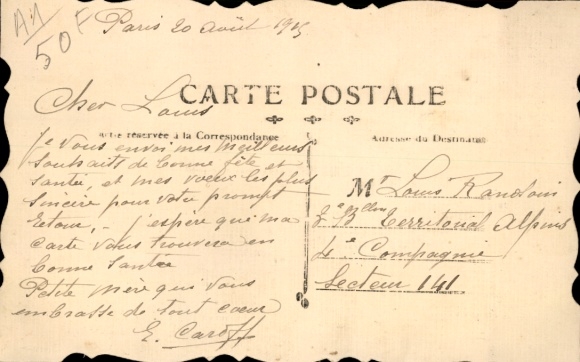 A1
50F
Paris 20 Août 1915
CARTE POSTALE
Cher Louis
réservée à la Correspondance
Je vous envoi mes meilleurs
souhaits de bonne fête et
santée, et mes voeux les plus
sincère pour votre prompt
retour, – j'espère que ma
carte vous trouvera en
bonne santée
Petite mère qui vous
embrasse de tout coeur
E. Caroff
Adresse du Destinataire
Mr Louis
2e Bllon Territorial Alpins
4e Compagnie
Secteur 141